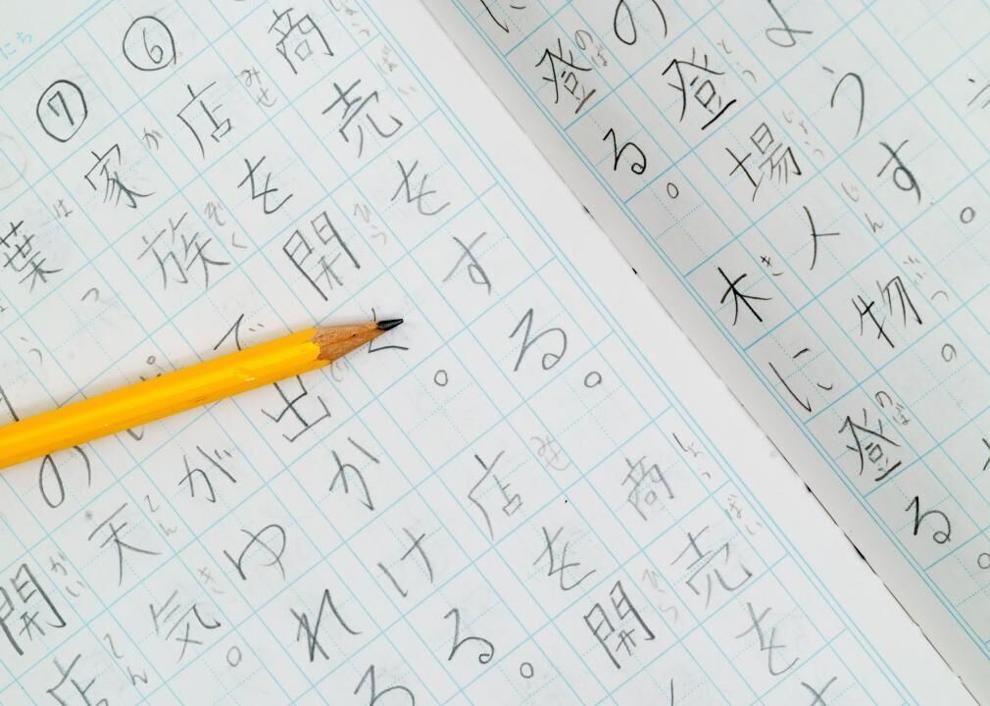 ようす。
の登場人物。
に登る。木に登る。
商売をする。商売をす
⑥店を開く。店を開
⑦家族で出かける。
葉っぱがゆれる
の天気。
開店